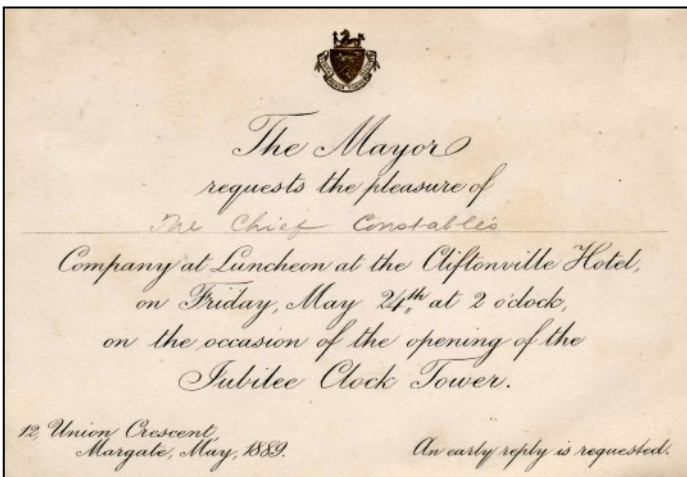 The Mayor
requests the pleasure of
The Chief Constable's
Company at Luncheon at the Cliftonville Hotel,
on Friday, May 24th at 2 o'clock,
on the occasion of the opening of the
Jubilee Clock Tower.
12, Union Crescent,
Margate, May, 1889.
An early reply is requested.